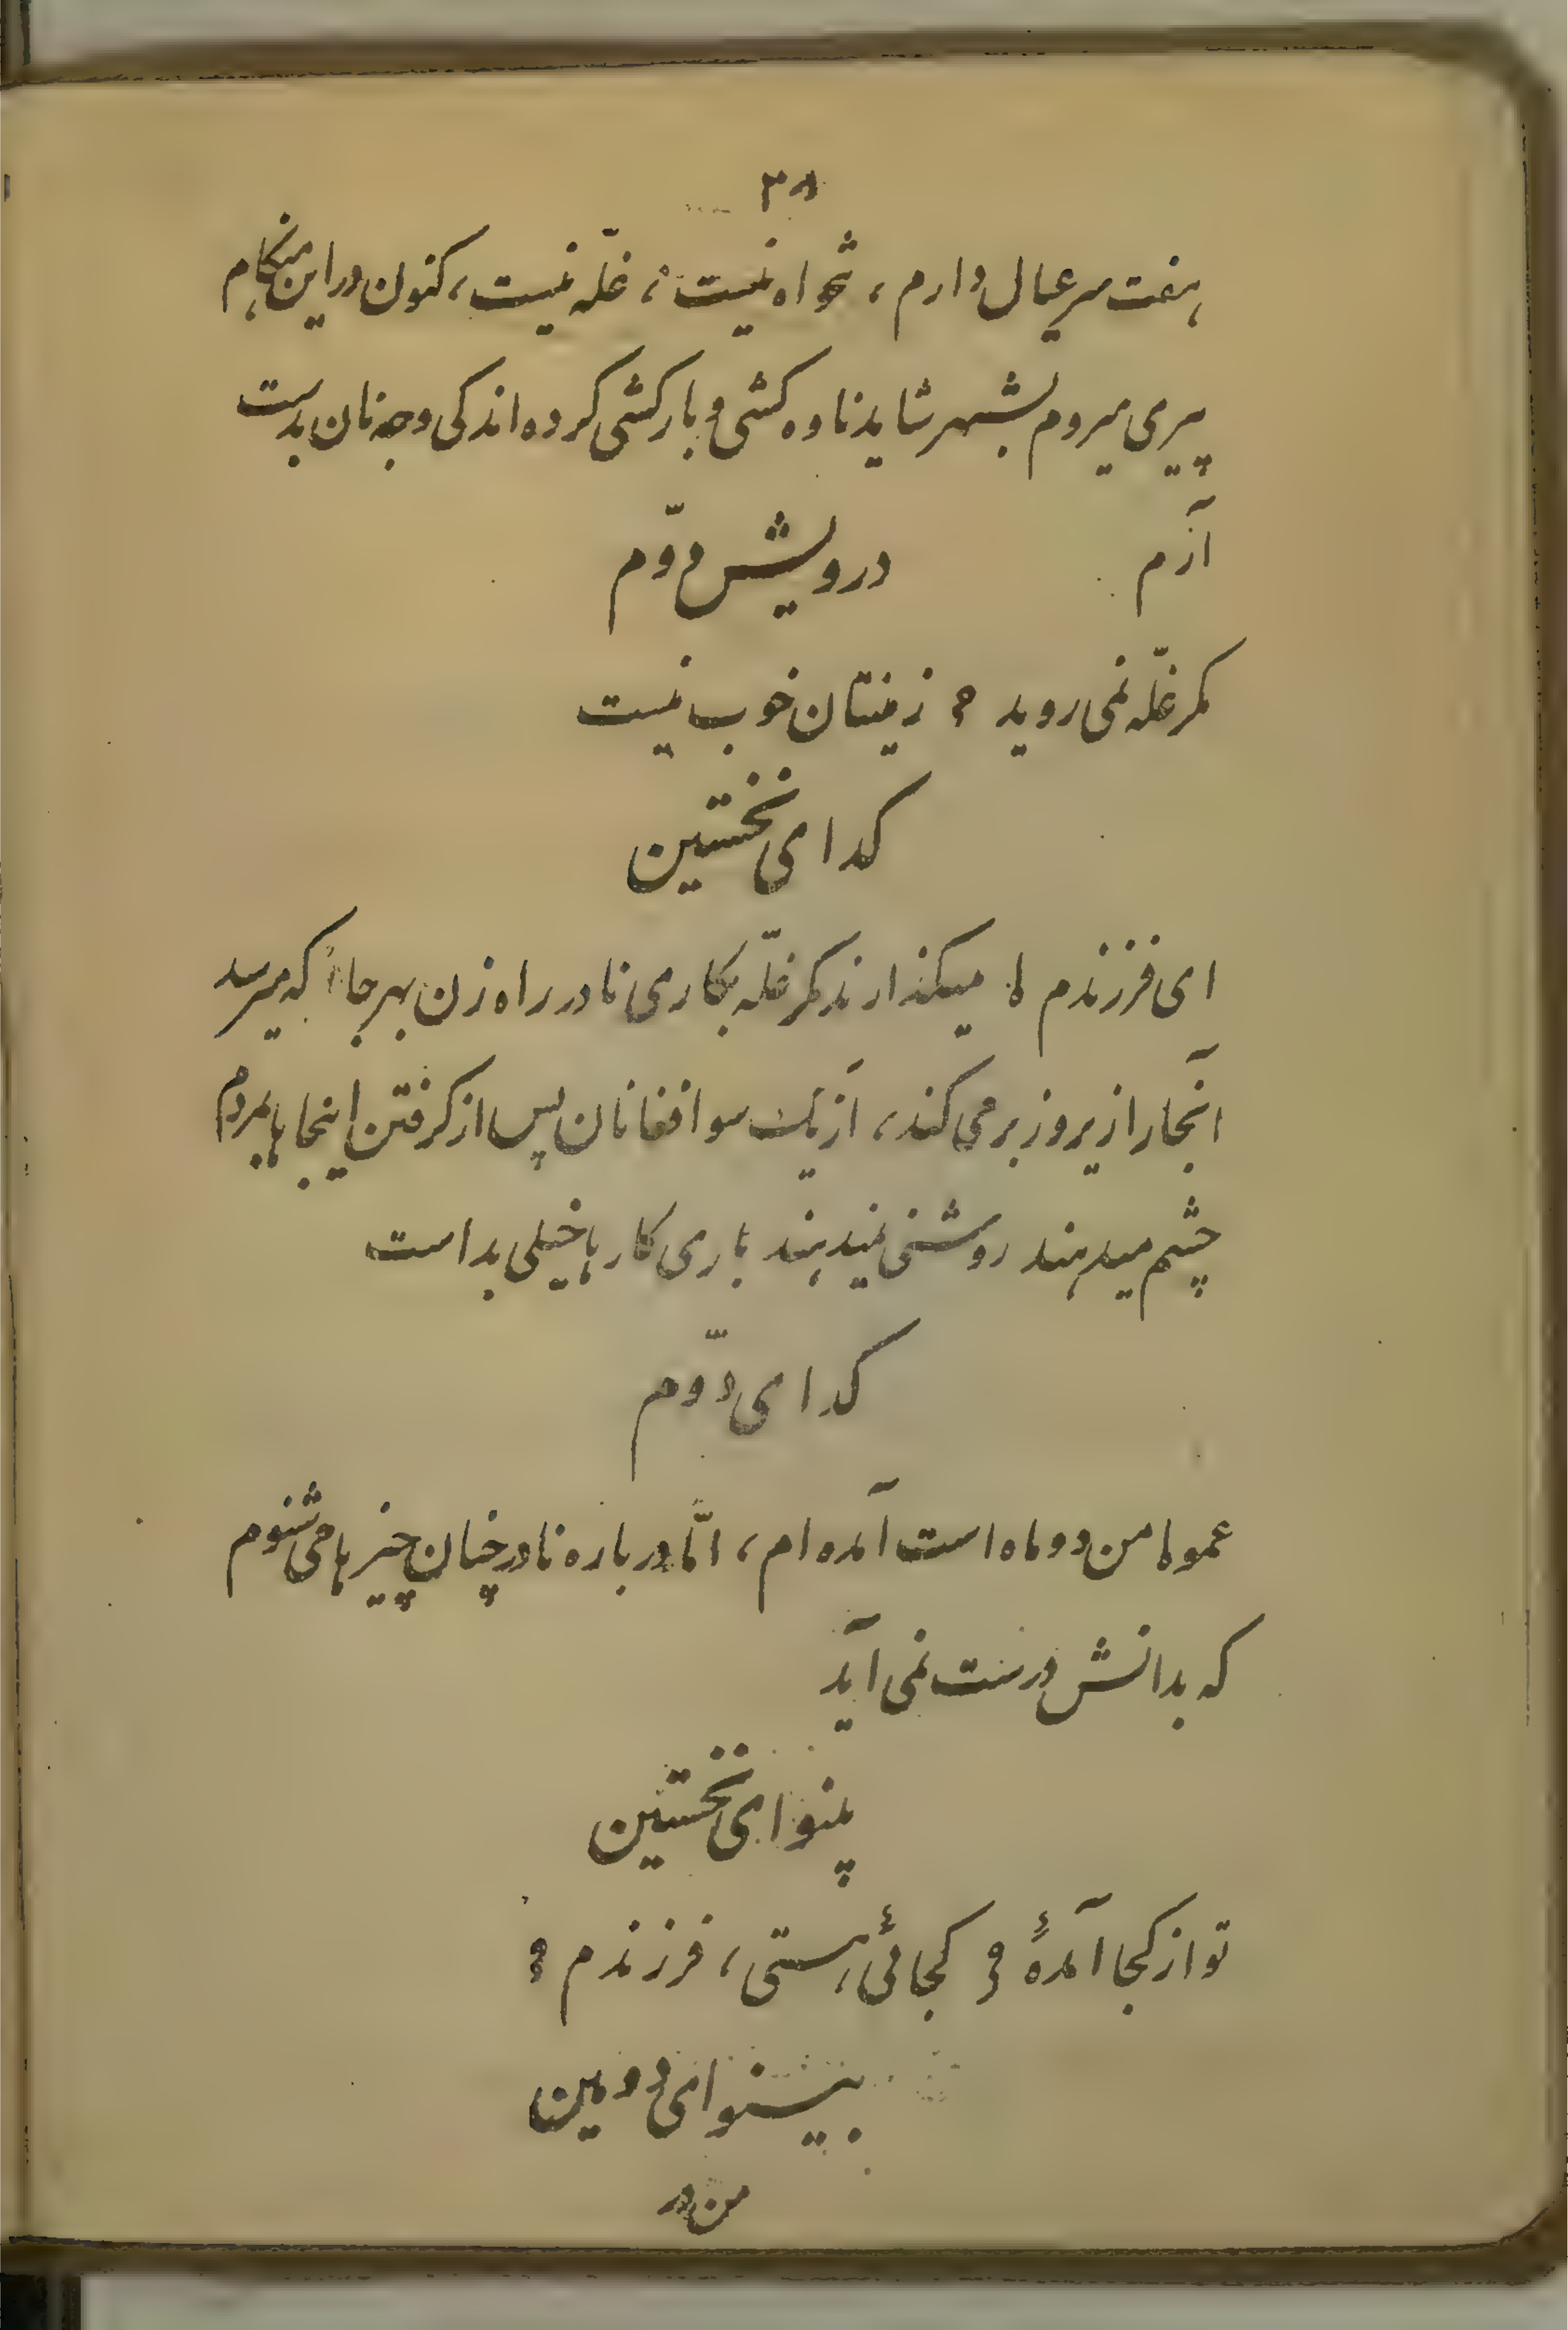 ۳۸
هفت سر عیال دارم، نحواه نیست، غلّه نیست، کنون در این هنکام
پیری میروم بشهر شاید ناوه کشی و بارکشی کرده اندکی وجه نان بدست
آرم
درویش دوّم
مکر غلّه نمی روید ؟ زمینتان خوب نیست
کدای نخستین
ای فرزندم ما میکذارند مکر غلّه بکاری نادر راه زن بهر جا که میرسد
آنجا را زیر و زبر می کند، از یک سو افغانان پس از کرفتن اینجاها بمردم
چشم میدهند روشنی نمیدهند باری کارها خیلی بد است
کدای دوّم
عموما من دو ماه است آمده ام، امّا در باره نادر چنان چیزها می شنوم
که بدانش درست نمی آید
پنوای نخستین
تو از کجا آمدهٔ ؟ کجائی هستی، فرزندم ؟
بینوای دومین
من در